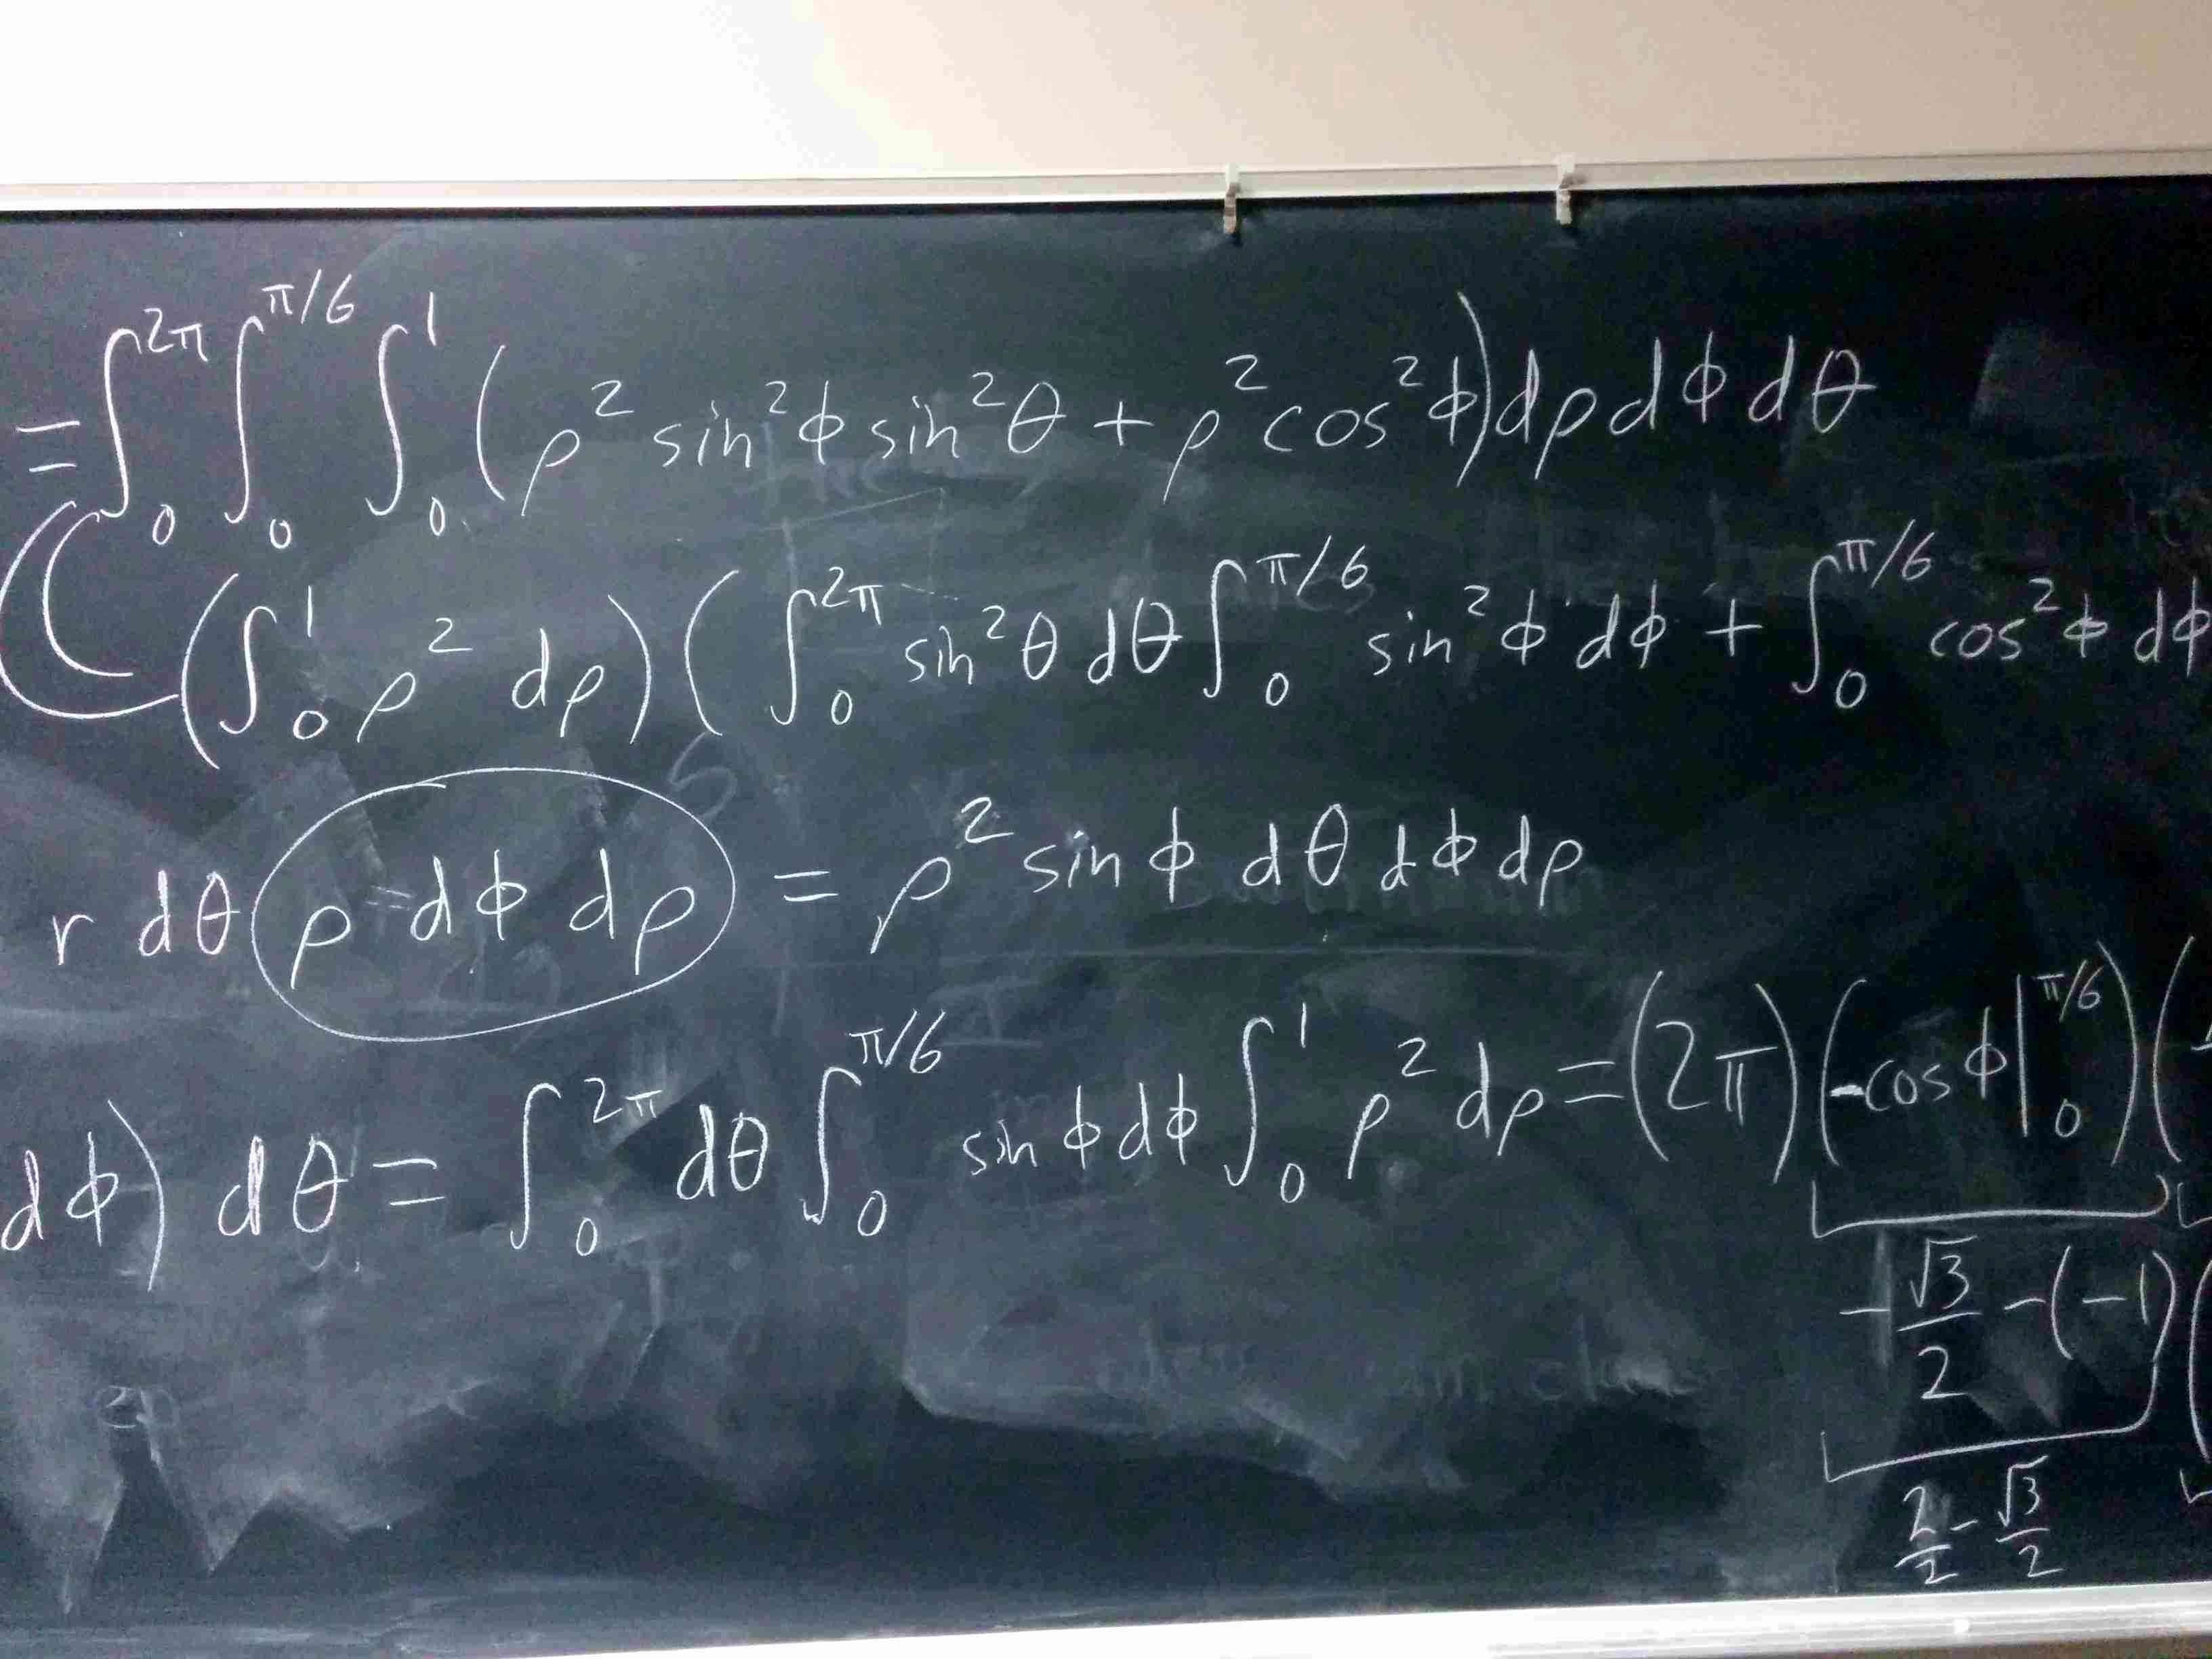 = ∫₀^{2π} ∫₀^{π/6} ∫₀^1 (ρ² sin²ϕ sin²θ + ρ² cos²ϕ) dρ dϕ dθ
(∫₀^1 ρ² dρ) (∫₀^{2π} sin²θ dθ ∫₀^{π/6} sin²ϕ dϕ + ∫₀^{π/6} cos²ϕ dϕ
r dθ ρ dϕ dρ = ρ² sin ϕ dθ dϕ dρ
dϕ) dθ = ∫₀^{2π} dθ ∫₀^{π/6} sin ϕ dϕ ∫₀^1 ρ² dρ = (2π) (-cos ϕ |₀^{π/6}) (
-√3/2 - (-1)
2/2 - √3/2